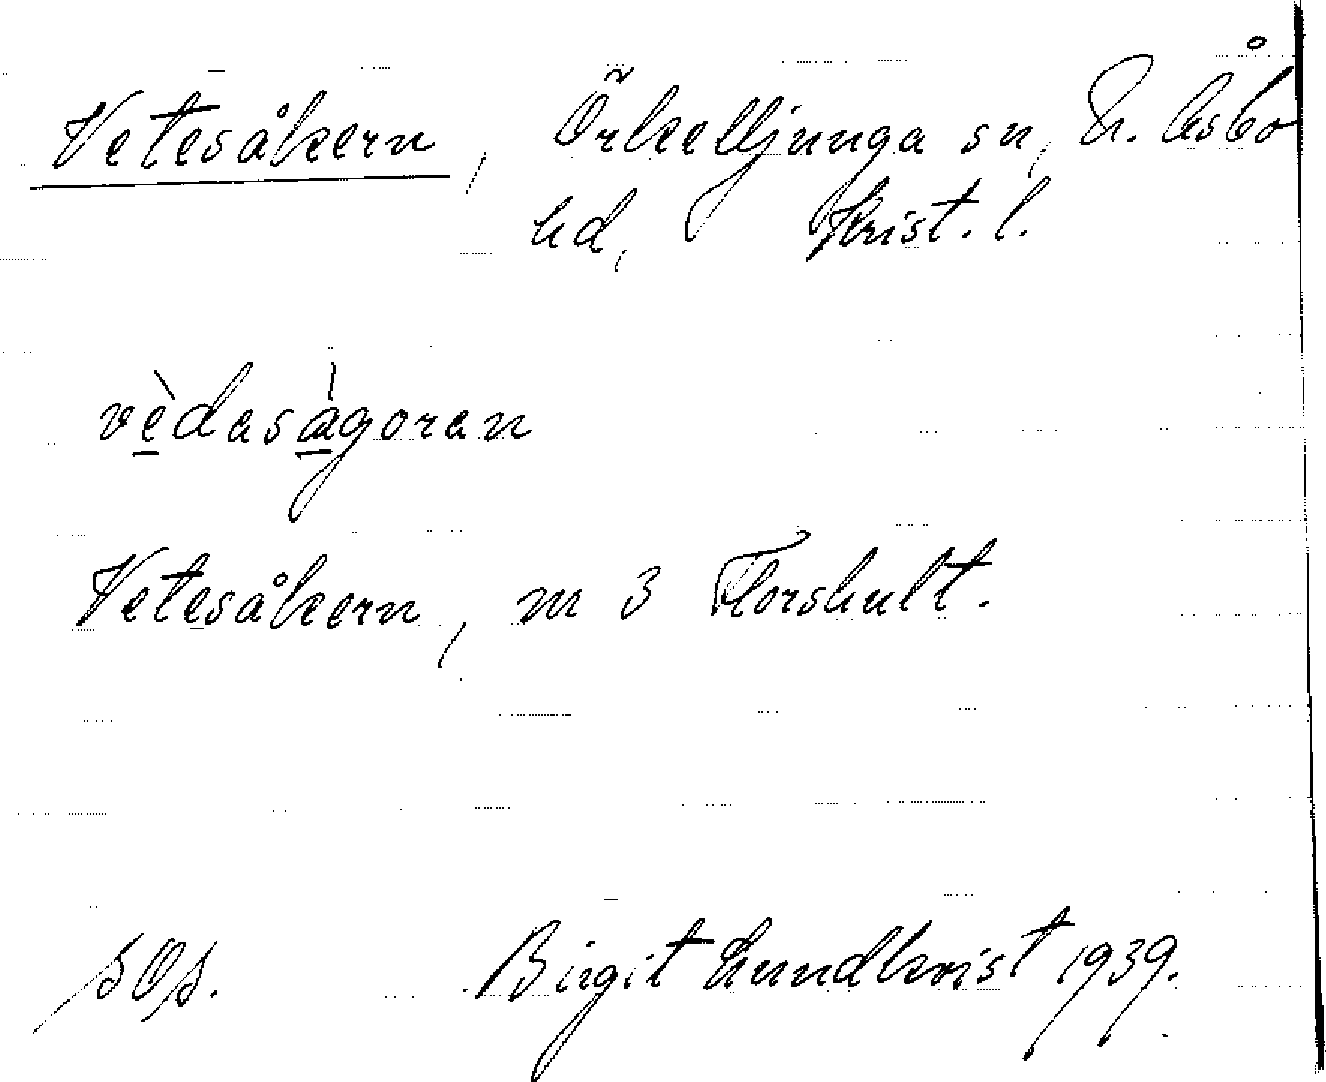 Vetesåkern, Örkelljunga sn, N. Åsbo
hd, Krist. l.
vèdasàgoran
Vetesåkern, m 3 Florshult.
Birgit Lundkvist 1939.